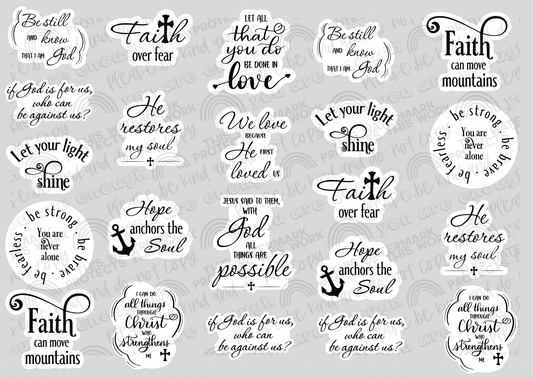 Be still
and know
THAT I AM God
Faith
over fear
LET ALL
that
you do
BE DONE IN
love
Be still
and know
THAT I AM God
Faith
can move
mountains
if God is for us,
who can
be against us?
He
restores
my soul
Let your light
shine
We love
BECAUSE
HE FIRST
loved US
Let your light
shine
be strong · be brave · be fearless ·
You are
never
alone
Faith
over fear
be strong · be brave · be fearless ·
You are
never
alone
Hope
anchors the
Soul
JESUS SAID TO THEM,
WITH
God
ALL
THINGS ARE
possible
Hope
anchors the
Soul
He
restores
my soul
Faith
can move
mountains
I CAN DO
all things
THROUGH
Christ
WHO
strengthens
ME
if God is for us,
who can
be against us?
if God is for us,
who can
be against us?
I CAN DO
all things
THROUGH
Christ
WHO
strengthens
ME